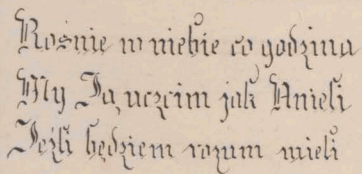 Rośnie w niebie co godzina
My Ją uczcim jak Anieli
Jeżli będziem rozum mieli